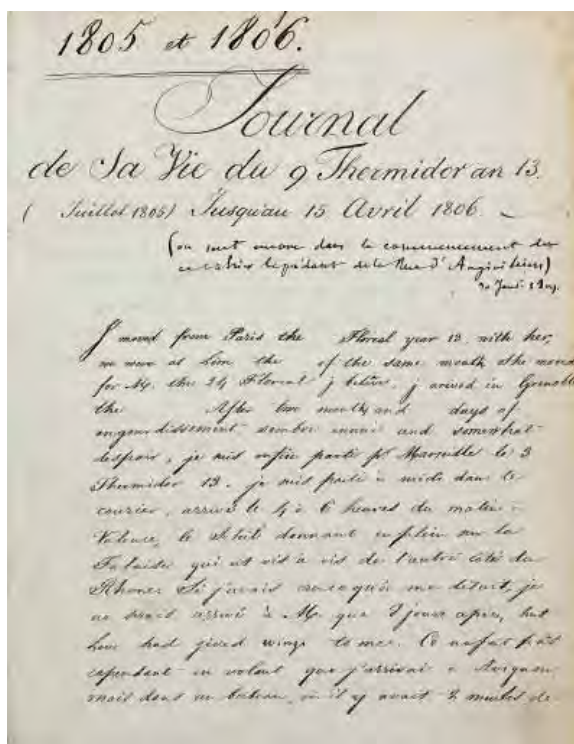 1805 et 1806.
Journal
de Sa Vie du 9 Thermidor an 13.
( Juillet 1805) Jusqu'au 15 Avril 1806.
(on met encore dans le commencement des
de la Rue d'Angiviller)
30
I moved from Paris the Floreal year 13. with her,
we were at Lion the of the same month she moved
for M. the 24 Floreal j believe, j arived in Grenoble
the After two months and days of
engourdissement sombre ennui and somewhat
despair, je suis enfin parti pr Marseille le 3
Thermidor 13. je suis parti à midi dans le
courier, arrivé le 4 à 6 heures du matin à
Valence, le Soleil donnant en plein sur la
Falaise qui est vis à vis de l'autre côté du
Rhône. Si j'avais ce qu'on me disait, je
ne serais arrivé à M. que 2 jours après, but
love had gived wings to mee. Ce ne fut pas
cependant en volant que j'arrivai à Avignon
mais dans un bateau, où il y avait 2 de